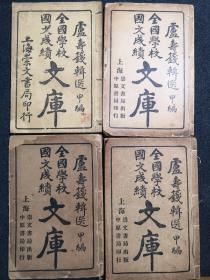 盧壽籛輯選 甲編
全國學校
國文成績
文庫
上海崇文書局印行
盧壽籛輯選 甲編
全國學校
國文成績
文庫
上海
崇文書局出版
中原書局印行
盧壽籛輯選 甲編
全國學校
國文成績
文庫
上海
崇文書局出版
中原書局印行
盧壽籛輯選 甲編
全國學校
國文成績
文庫
上海
崇文書局出版
中原書局印行